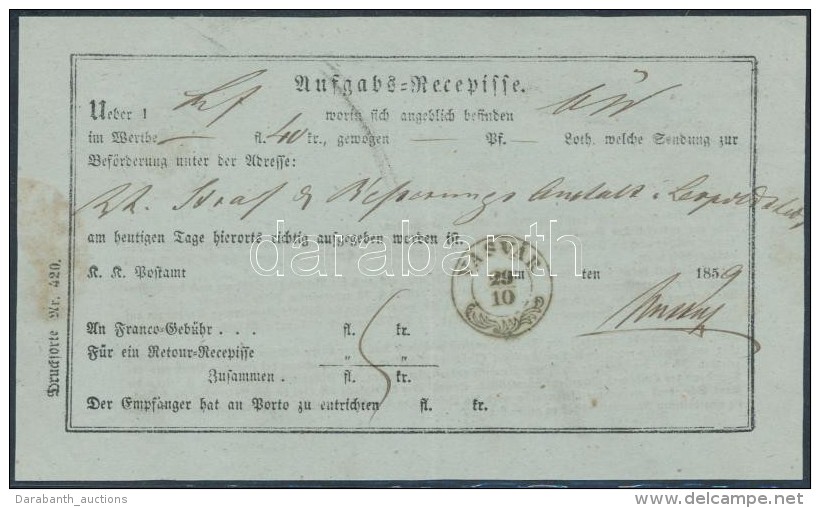 Aufgabs=Recepisse.
Ueber 1 worin sich angeblich befinden
im Werthe fl. 40 kr., gewogen Pf. Loth, welche Sendung zur
Beförderung unter der Adresse:
Straf & Besserungs Anstalt
am heutigen Tage hierorts richtig aufgegeben worden ist.
darabanth
VASVÁR
K. K. Postamt am ten 1859
29
10
An Franco-Gebühr . . . fl. kr.
Für ein Retour-Recepisse " "
Zusammen . fl. kr.
Der Empfänger hat an Porto zu entrichten fl. kr.
Drucksorte Nr. 420.
Darabanth_auctions
www.delcampe.net